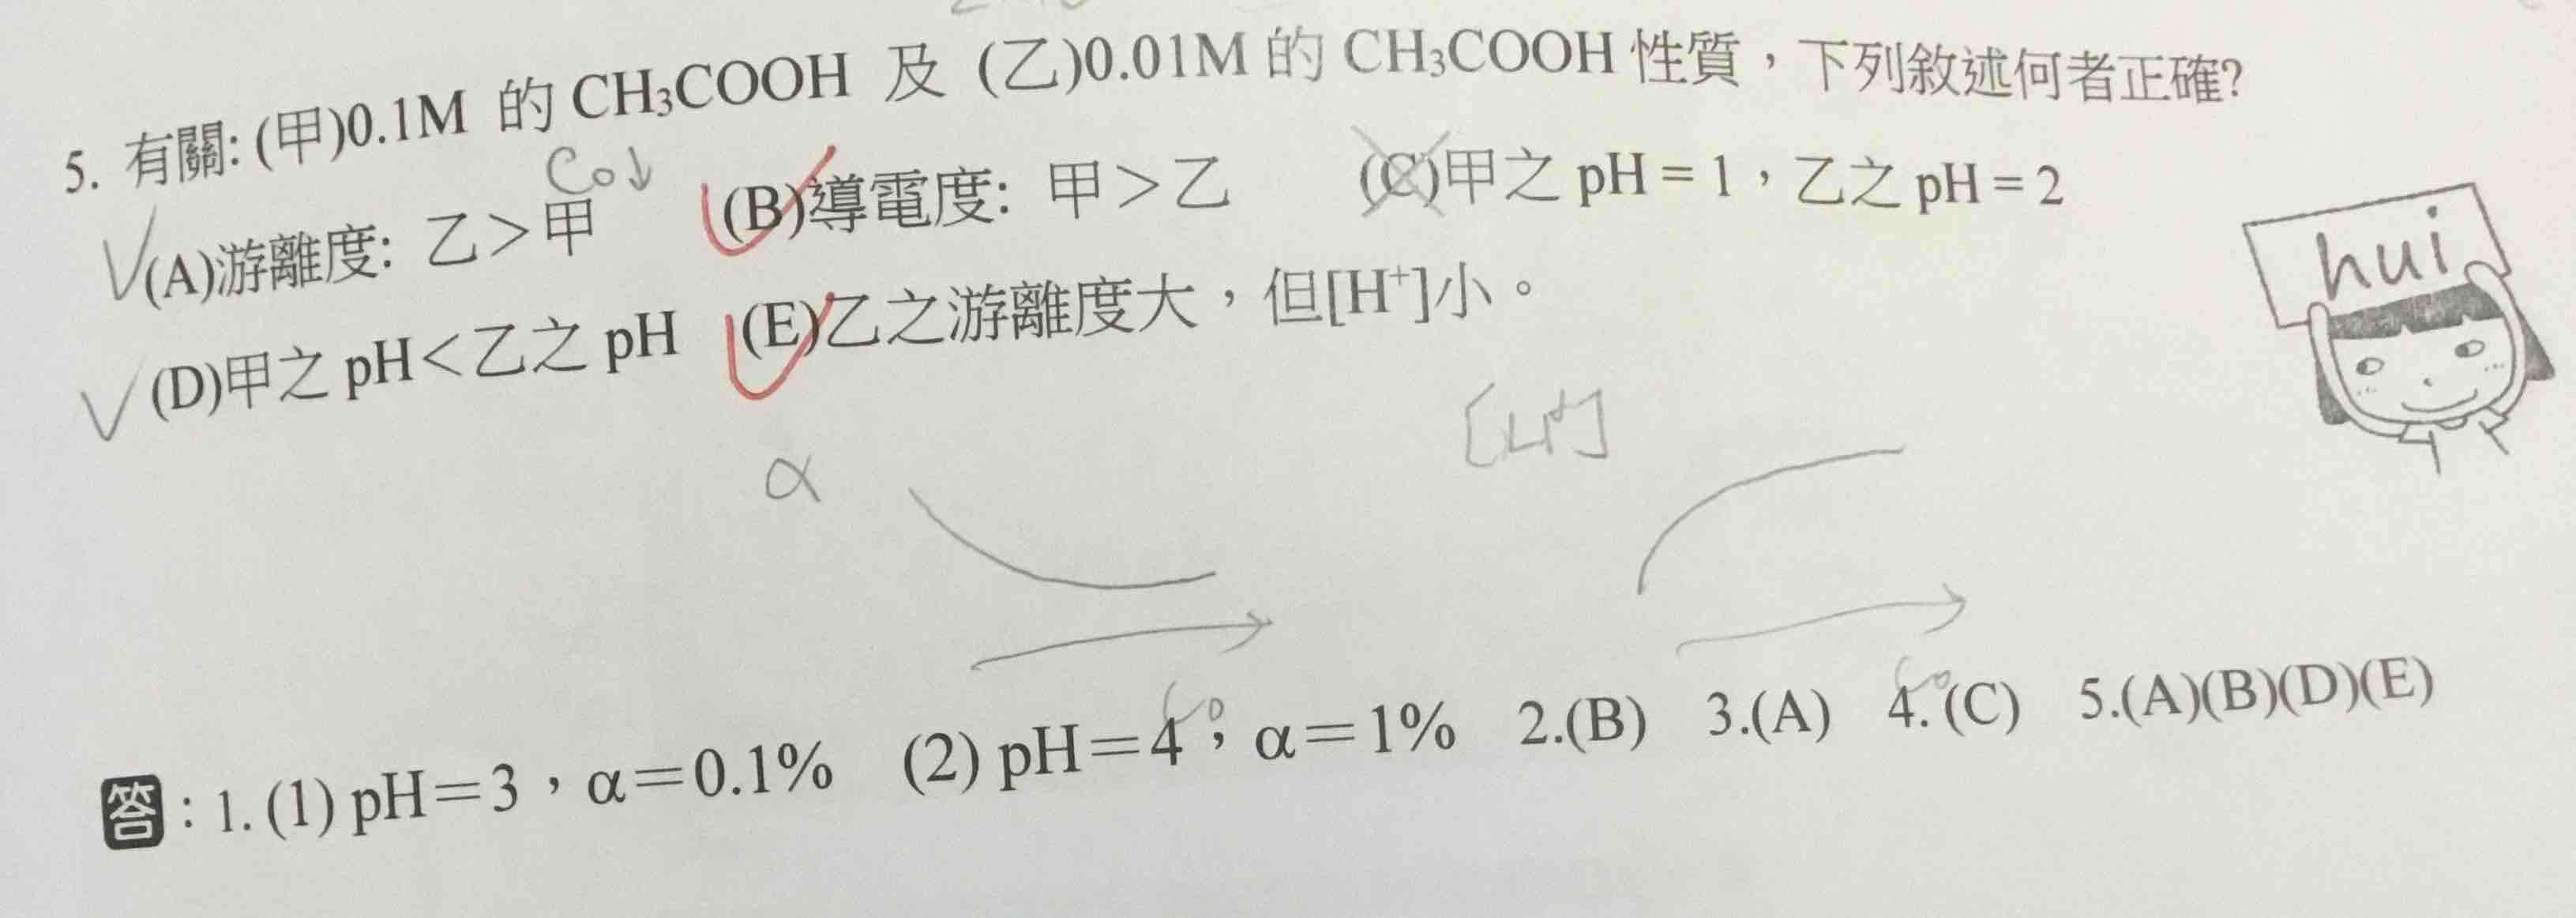 5. 有關: (甲)0.1M 的 CH₃COOH 及 (乙)0.01M 的 CH₃COOH 性質，下列敘述何者正確?
Co↓
(A)游離度: 乙＞甲 (B)導電度: 甲＞乙 (C)甲之 pH = 1，乙之 pH = 2
hui
(D)甲之 pH＜乙之 pH (E)乙之游離度大，但[H⁺]小。
α [H⁺]
Co Co
答：1. (1) pH＝3，α＝0.1% (2) pH＝4，α＝1% 2.(B) 3.(A) 4.(C) 5.(A)(B)(D)(E)